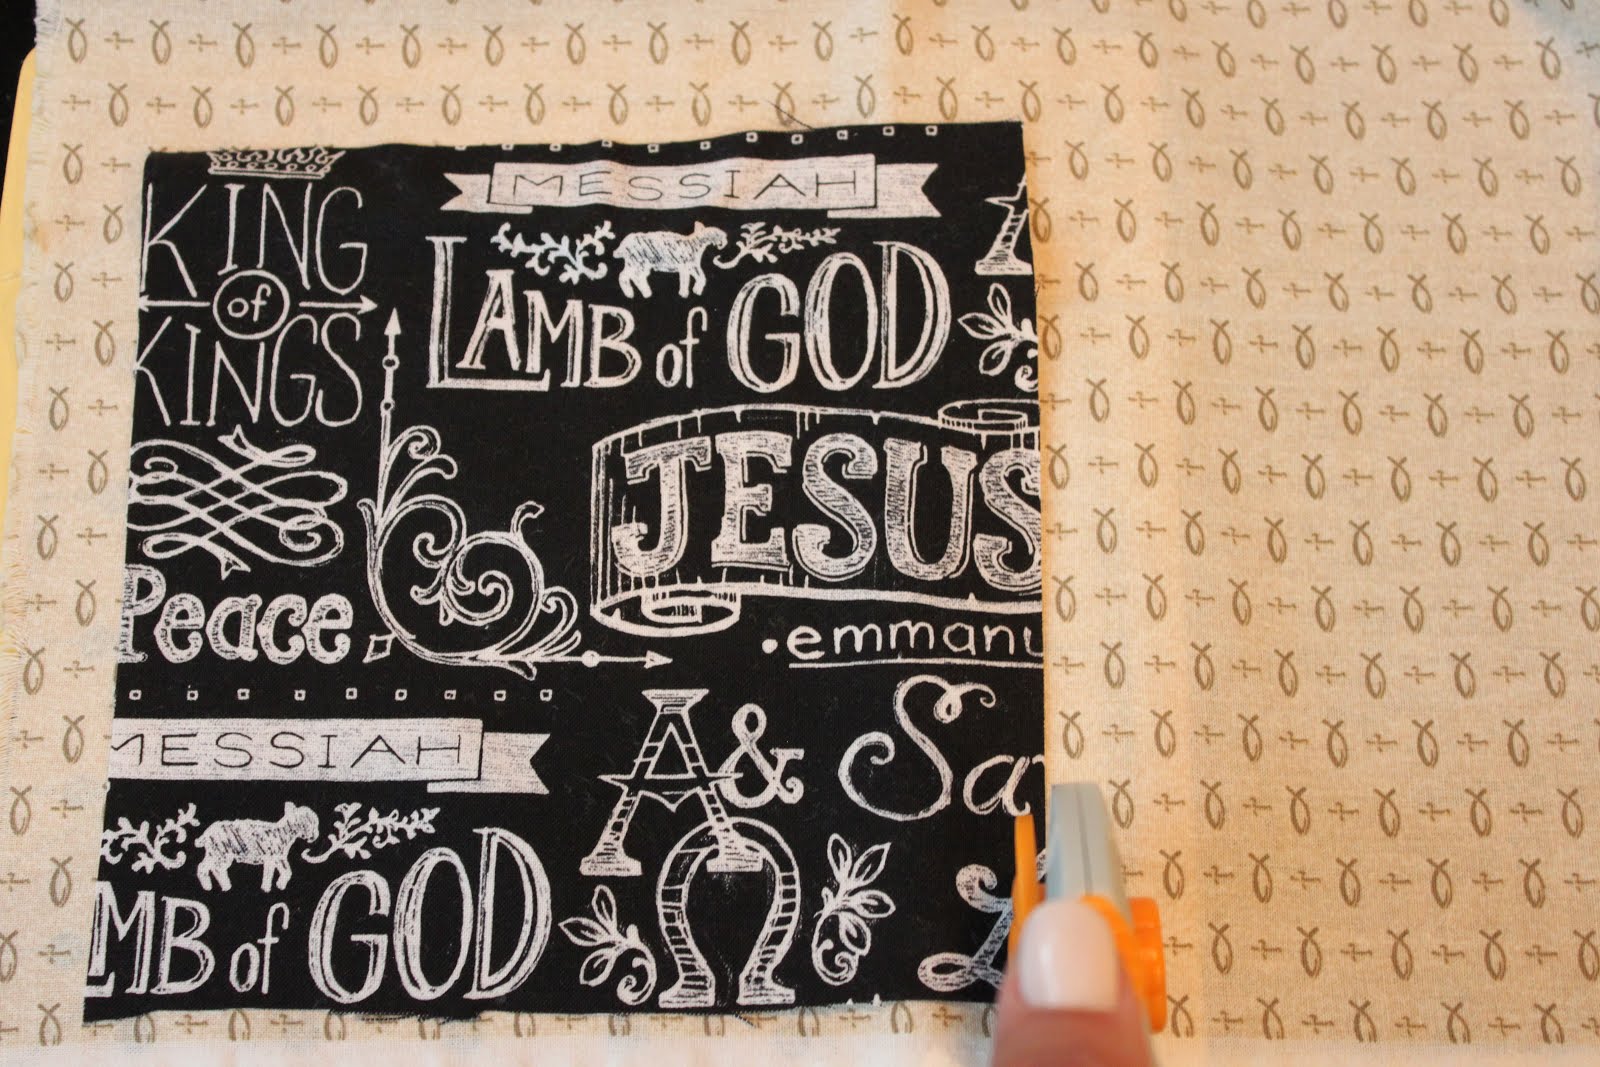 KING
of
KINGS
MESSIAH
LAMB of GOD
JESUS
• emmanu
Peace
MESSIAH
AMB of GOD
Α &
Ω
Sa